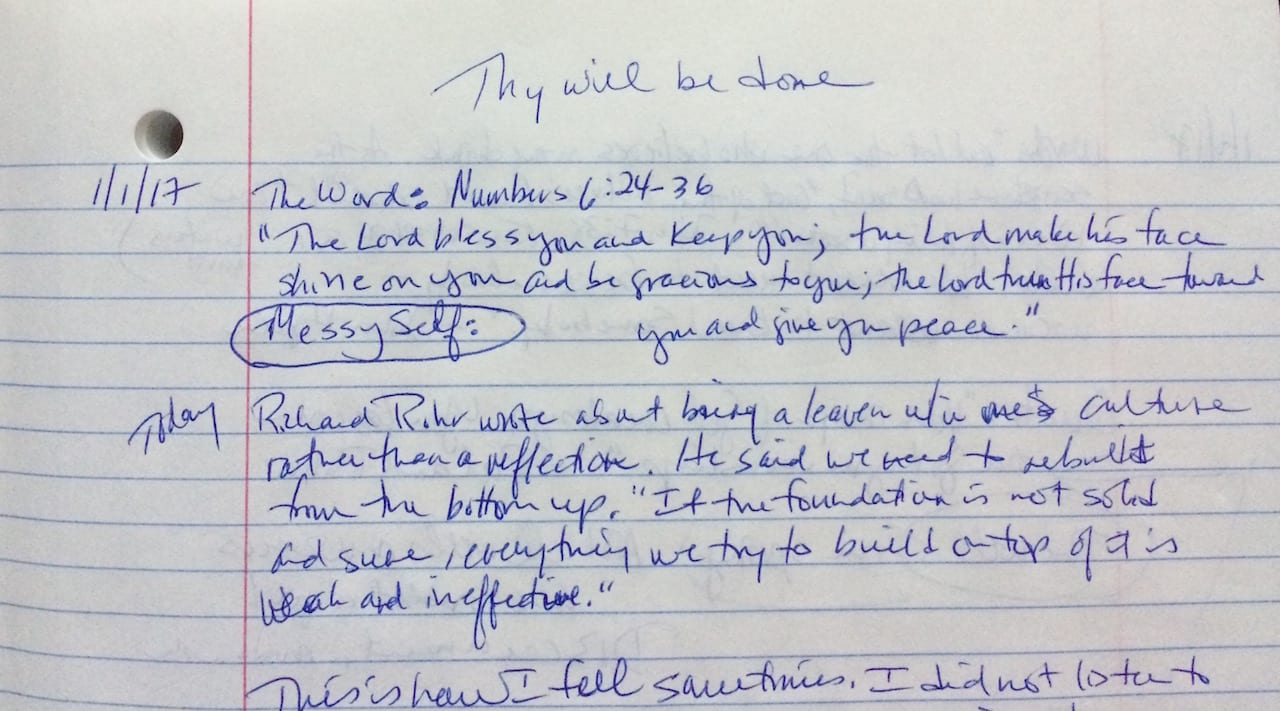 Thy will be done
1/1/17 The Word: Numbers 6:24-36
"The Lord bless you and keep you; the Lord make his face
shine on you and be gracious to you; the Lord turn His face toward
Messy Self: you and give you peace."
Today Richard Rohr wrote about being a leaven w/in one's culture
rather than a reflection. He said we need to rebuild
from the bottom up. "If the foundation is not solid
and sure, everything we try to build on top of it is
weak and ineffective."
This is how I feel sometimes. I did not listen to